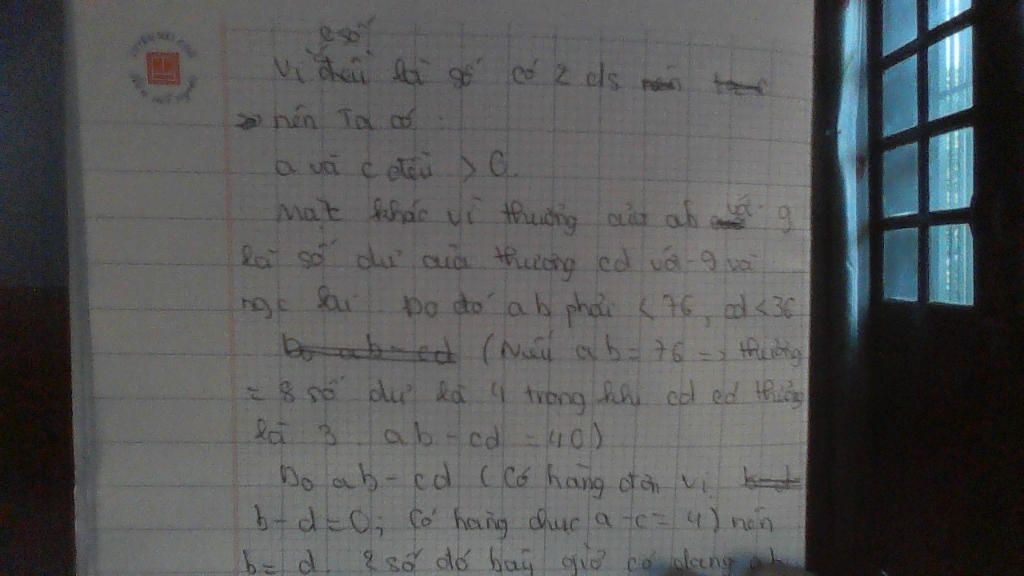 2 số
Vì đều là số có 2 cls
=> nên Ta có
a và c đều > 0.
Mặt khác vì thương của ab với 9
là số dư của thương cd với 9 và
ngc lại Do đó ab phải < 76, cd < 36
Do ab - cd (Nếu ab = 76 => thương
= 8 số dư là 4 trong khi cd có thương
là 3 ab - cd = 40)
Do ab - cd (Có hàng đơn vị
b - d = 0; Có hàng chục a - c = 4) nên
b = d 2 số đó bây giờ có dạng ab